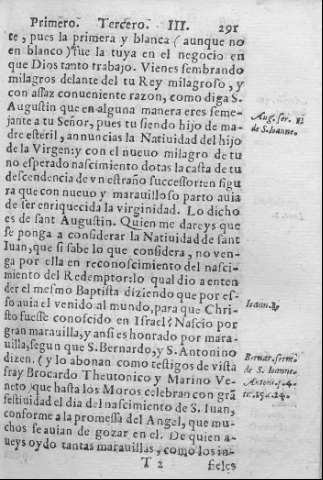 Primero. Tercero. III. 291
te, pues la primera y blanca (aunque no
en blanco) fue la tuya en el negocio en
que Dios tanto trabajo. Vienes sembrando
milagros delante del tu Rey milagroso, y
con assaz conueniente razon, como diga S.
Augustin que en alguna manera eres seme-
jante a tu Señor, pues tu siendo hijo de ma-
dre esteril, annuncias la Natiuidad del hijo
de la Virgen: y con el nueuo milagro de tu
no esperado nascimiento dotas la casta de tu
descendencia de vn estraño successor ten figu
ra que con nueuo y marauilloso parto auia
de ser enriquecida la virginidad. Lo dicho
es de sant Augustin. Quien me dareys que
se ponga a considerar la Natiuidad de sant
Iuan, que si sabe lo que considera, no ven-
ga por ella en reconoscimiento del nasci-
miento del Redemptor: lo qual dio a enten
der el mesmo Baptista diziendo que por es-
so auia el venido al mundo, para que Chri-
sto fuesse conoscido en Israel? Nascio por
gran marauilla, y ansi es honrado por mara-
uilla, segun que S. Bernardo, y S. Antonino
dizen. (y lo abonan como testigos de vista
fray Brocardo Theutonico y Marino Ve-
neto) que hasta los Moros celebran con grã
festiuidad el dia del nascimiento de S. Iuan,
conforme a la promessa del Angel, que mu-
chos se auian de gozar en el. De quien a-
ueys oydo tantas marauillas, como los in-
T 2 fieles
Aug. ser.
de S. Ioanne.
Ioann.
Bernar. serm.
de S. Ioanne.
Antoni.